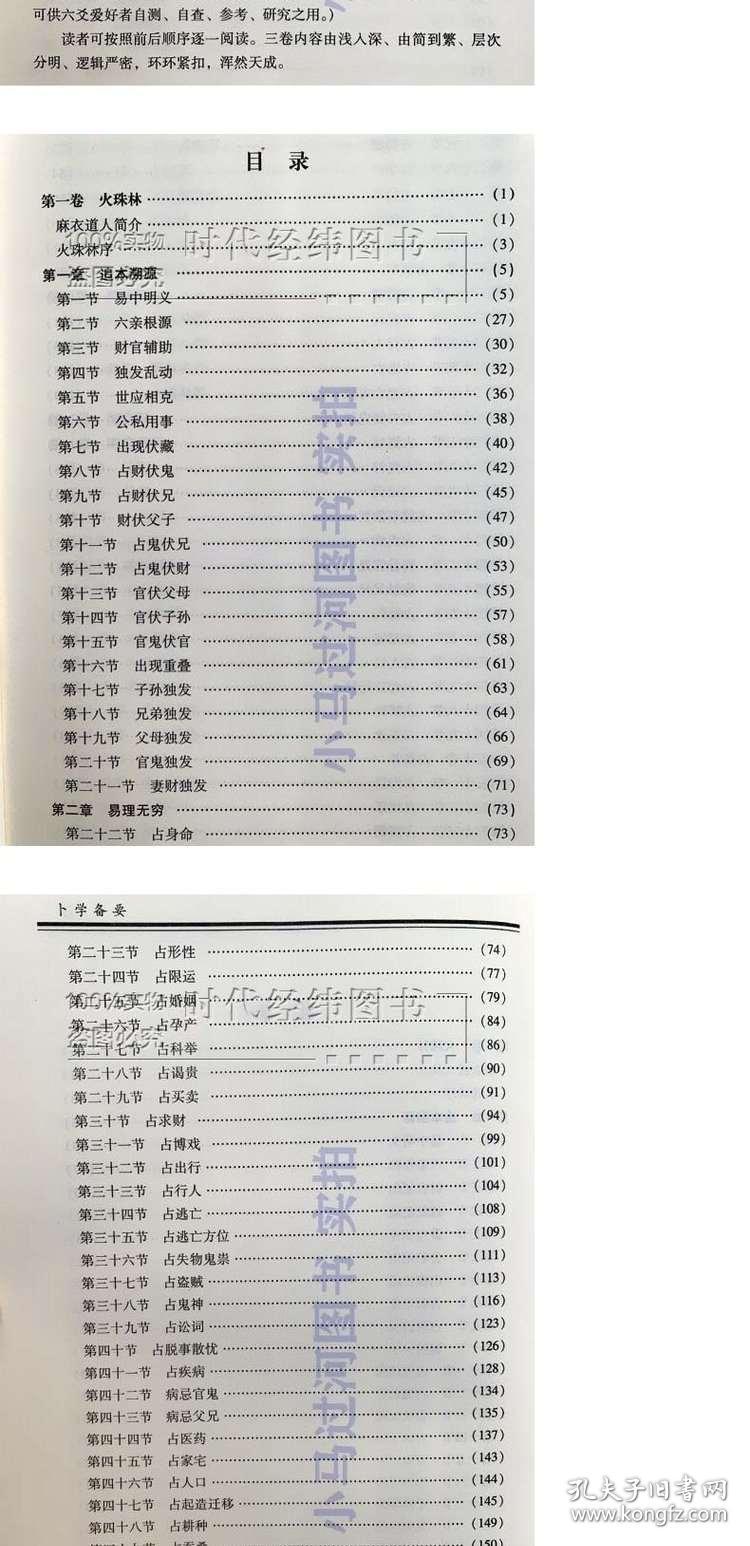 可供六爻爱好者自测、自查、参考、研究之用。)
读者可按照前后顺序逐一阅读。三卷内容由浅入深、由简到繁、层次
分明、逻辑严密，环环紧扣，浑然天成。
目 录
第一卷 火珠林 (1)
麻衣道人简介 (1)
火珠林序 (3)
第一章 追本溯源 (5)
第一节 易中明义 (5)
第二节 六亲根源 (27)
第三节 财官辅助 (30)
第四节 独发乱动 (32)
第五节 世应相克 (36)
第六节 公私用事 (38)
第七节 出现伏藏 (40)
第八节 占财伏鬼 (42)
第九节 占财伏兄 (45)
第十节 财伏父子 (47)
第十一节 占鬼伏兄 (50)
第十二节 占鬼伏财 (53)
第十三节 官伏父母 (55)
第十四节 官伏子孙 (57)
第十五节 官鬼伏官 (58)
第十六节 出现重叠 (61)
第十七节 子孙独发 (63)
第十八节 兄弟独发 (64)
第十九节 父母独发 (66)
第二十节 官鬼独发 (69)
第二十一节 妻财独发 (71)
第二章 易理无穷 (73)
第二十二节 占身命 (73)
100%实物
盗图必究
时代经纬图书
小马过河图书 实拍
卜学备要
第二十三节 占形性 (74)
第二十四节 占限运 (77)
第二十五节 占婚姻 (79)
第二十六节 占孕产 (84)
第二十七节 占科举 (86)
第二十八节 占谒贵 (90)
第二十九节 占买卖 (91)
第三十节 占求财 (94)
第三十一节 占博戏 (99)
第三十二节 占出行 (101)
第三十三节 占行人 (104)
第三十四节 占逃亡 (108)
第三十五节 占逃亡方位 (109)
第三十六节 占失物鬼祟 (111)
第三十七节 占盗贼 (113)
第三十八节 占鬼神 (116)
第三十九节 占讼词 (123)
第四十节 占脱事散忧 (126)
第四十一节 占疾病 (128)
第四十二节 病忌官鬼 (134)
第四十三节 病忌父兄 (135)
第四十四节 占医药 (137)
第四十五节 占家宅 (143)
第四十六节 占人口 (144)
第四十七节 占起造迁移 (145)
第四十八节 占耕种 (149)
100%实物
盗图必究
时代经纬图书
小马过河图书 实拍
孔夫子旧书网
www.kongfz.com